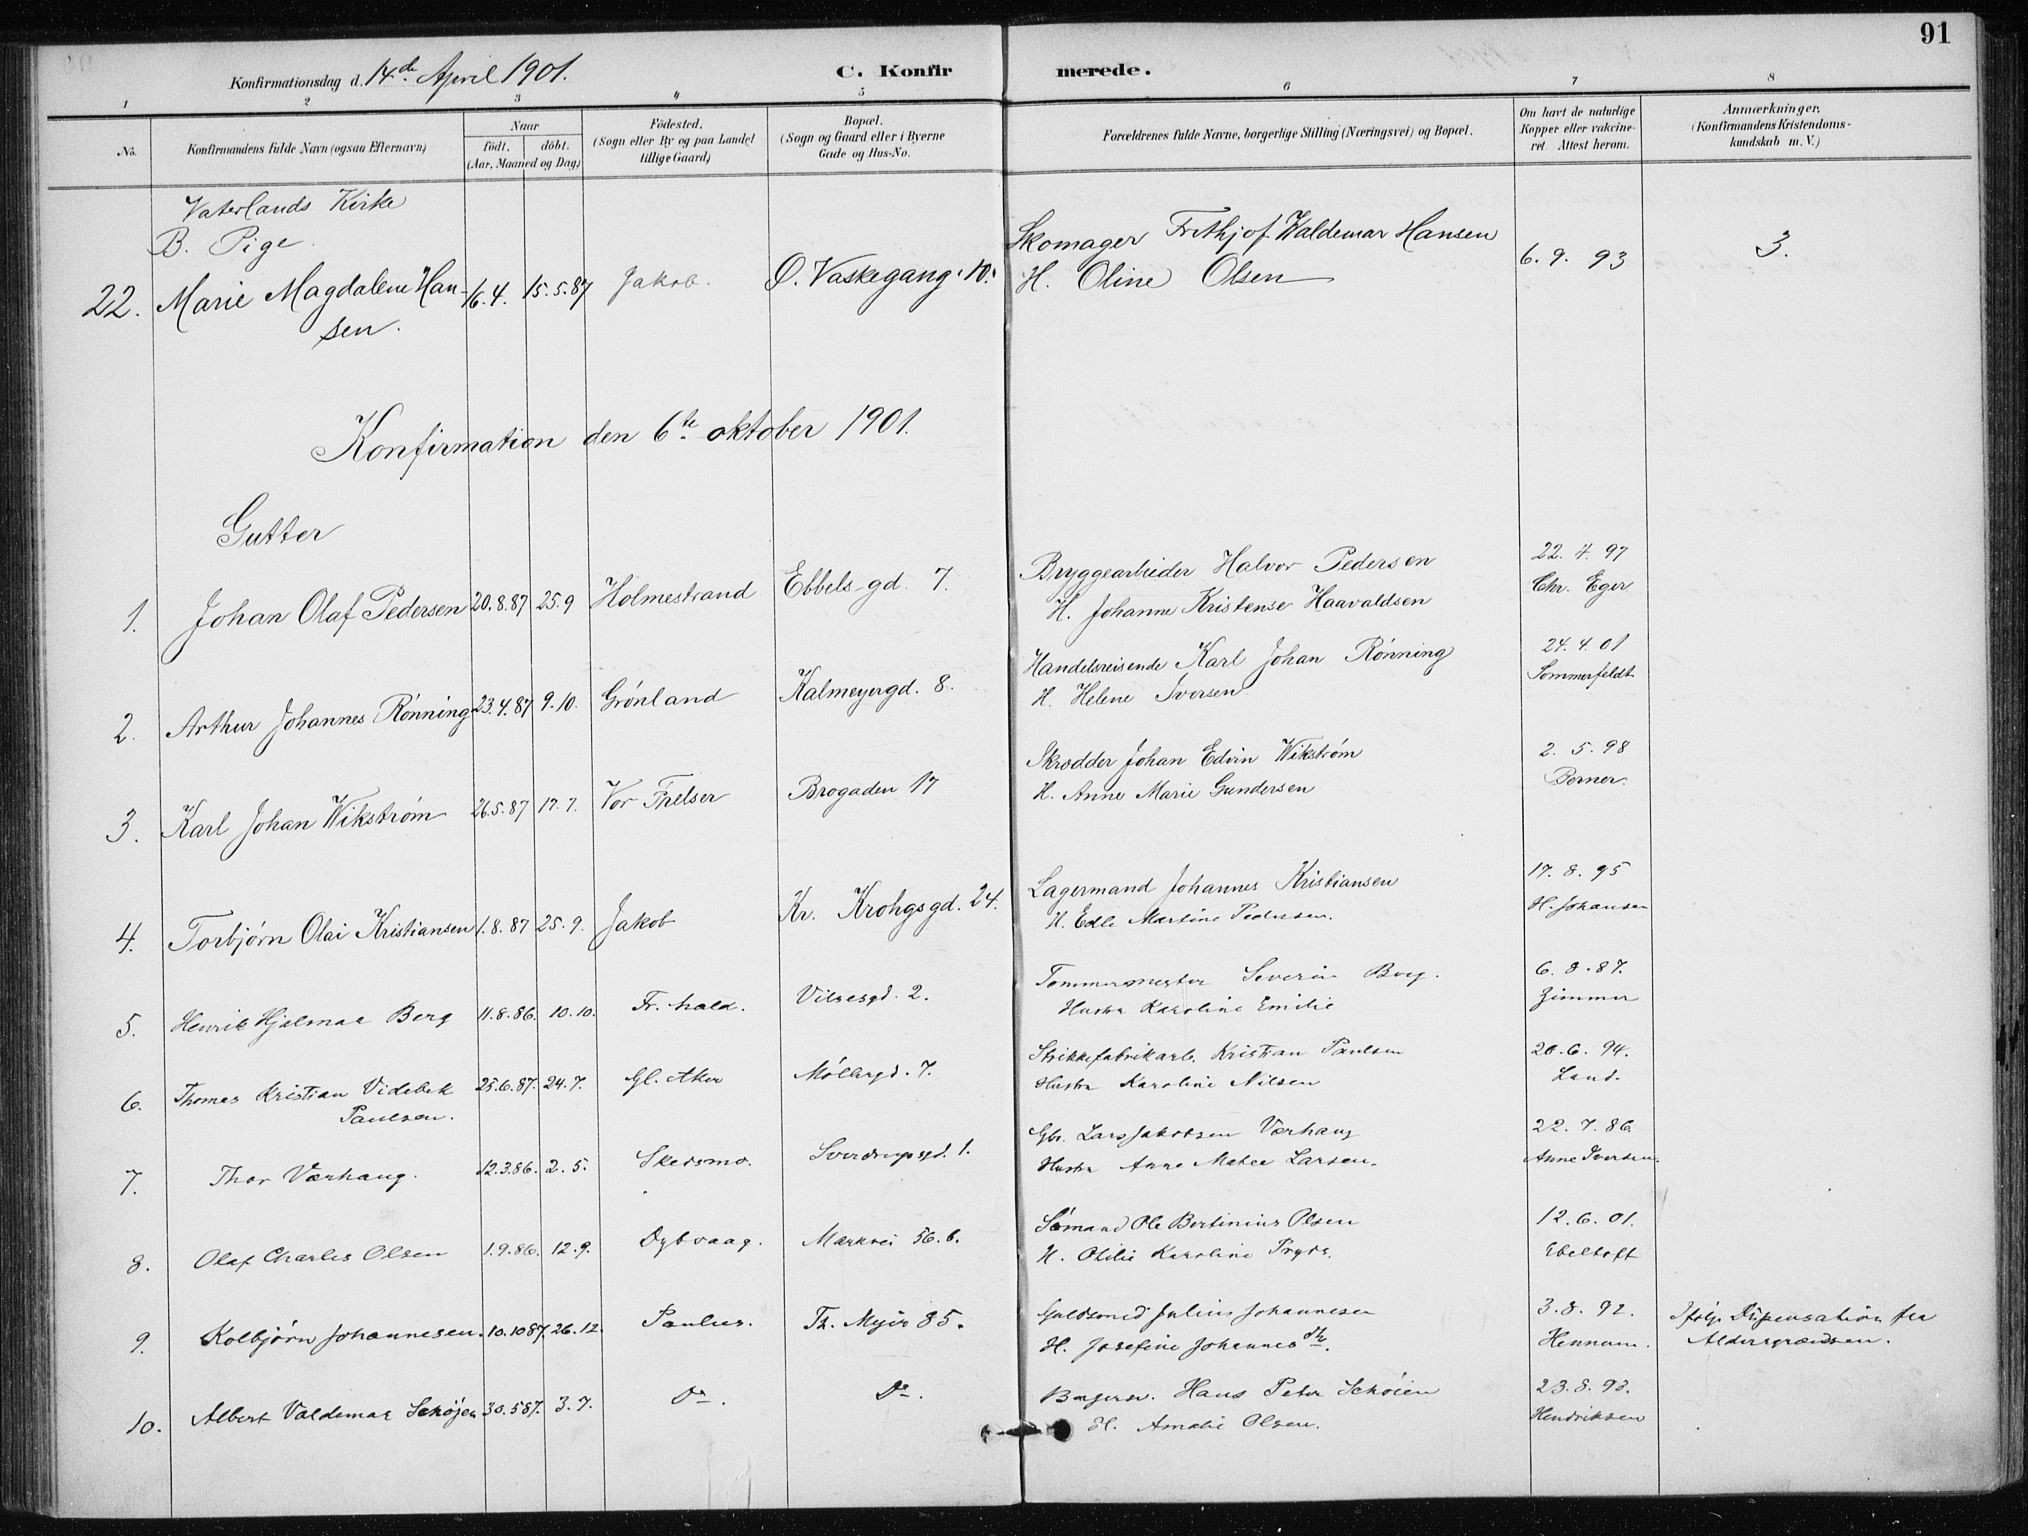 91
Konfirmationsdag d. 14de April 1901. C. Konfirmerede.
1 2 3 4 5 6 7 8
No. Konfirmandens fulde Navn (ogsaa Efternavn) Naar født. døbt. (Aar, Maaned og Dag) Fødested. (Sogn eller By og paa Landet tillige Gaard) Bopæl. (Sogn og Gaard eller i Byerne Gade og Hus-No. Forældrenes fulde Navne, borgerlige Stilling (Næringsvei) og Bopæl. Om havt de naturlige Kopper eller vakcineret. Attest herom. Anmærkninger. (Konfirmandens Kristendomskundskab m. V.)
Vaterlands Kirke
B. Pige.
22. Marie Magdalene Han- 16.4. 15.5.87 Jakob. Ø. Vaskegang 10. Skomager Frithjof Waldemar Hansen 6.9.93 3.
sen. H. Oline Olsen
Konfirmation den 6te oktober 1901.
Gutter
1. Johan Olaf Pedersen 20.8.87 25.9 Holmestrand Ebbels gd. 7. Bryggearbeider Halvor Pedersen 22.7.97
H. Johanne Kristense Haavaldsen Chr. Eger
2. Arthur Johannes Rønning 23.4.87 9.10. Grønland Kalmeyergd. 8. Handelsreisende Karl Johan Rønning 24.4.01
H. Helene Iversen Sommerfeldt
3. Karl Johan Wikstrøm 26.5.87 17.7. Vor Frelser Brogaden 17 Skrædder Johan Edvin Wikstrøm 2.5.98
H. Anne Marie Gundersen Berner.
4. Torbjørn Olai Kristiansen 1.8.87 25.9. Jakob Kr. Krohgsgd. 24. Lagermand Johannes Kristiansen 17.8.95
H. Edle Martine Pedersen. H. Johansen
5. Henrik Hjalmar Berg 11.8.86. 10.10. Fr.hald. Vilsesgd. 2. Tømmermester Severin Berg. 6.8.87.
Hustru Karoline Emilie Zimmer
6. Thomas Kristian Videbek 25.6.87. 24.7. Gl. Aker Møllergd. 7. Strikkefabrikarb. Kristian Paulsen 20.6.94.
Paulsen. Hustru Karoline Nilsen Land.
7. Thor Værhaug. 12.3.86. 2.5. Skedsmo. Sverdrupsgd. 1. Gbr. Lars Jakobsen Værhaug 22.7.86.
Hustru Anne Mathea Larsen. Anne Iversen.
8. Olaf Charles Olsen 1.9.86. 12.9. Dybvaag. Markvei 56.b. Sømand Ole Bertinius Olsen 12.6.01.
H. Otilie Karoline Ebeltoft
9. Kolbjørn Johannesen. 10.1087. 26.12. Paulus. Th. Myer 85. Guldsmed Julius Johannesen 3.8.92. Ifølge Dispensation fra
H. Josefine Johannesdtr. Hennum. Aldersgrændsen.
10. Albert Valdemar Schøjen 30.587. 3.7. Do. Do. Hans Peter Schøien 23.8.93.
H. Amalie Olsen. Hendriksen